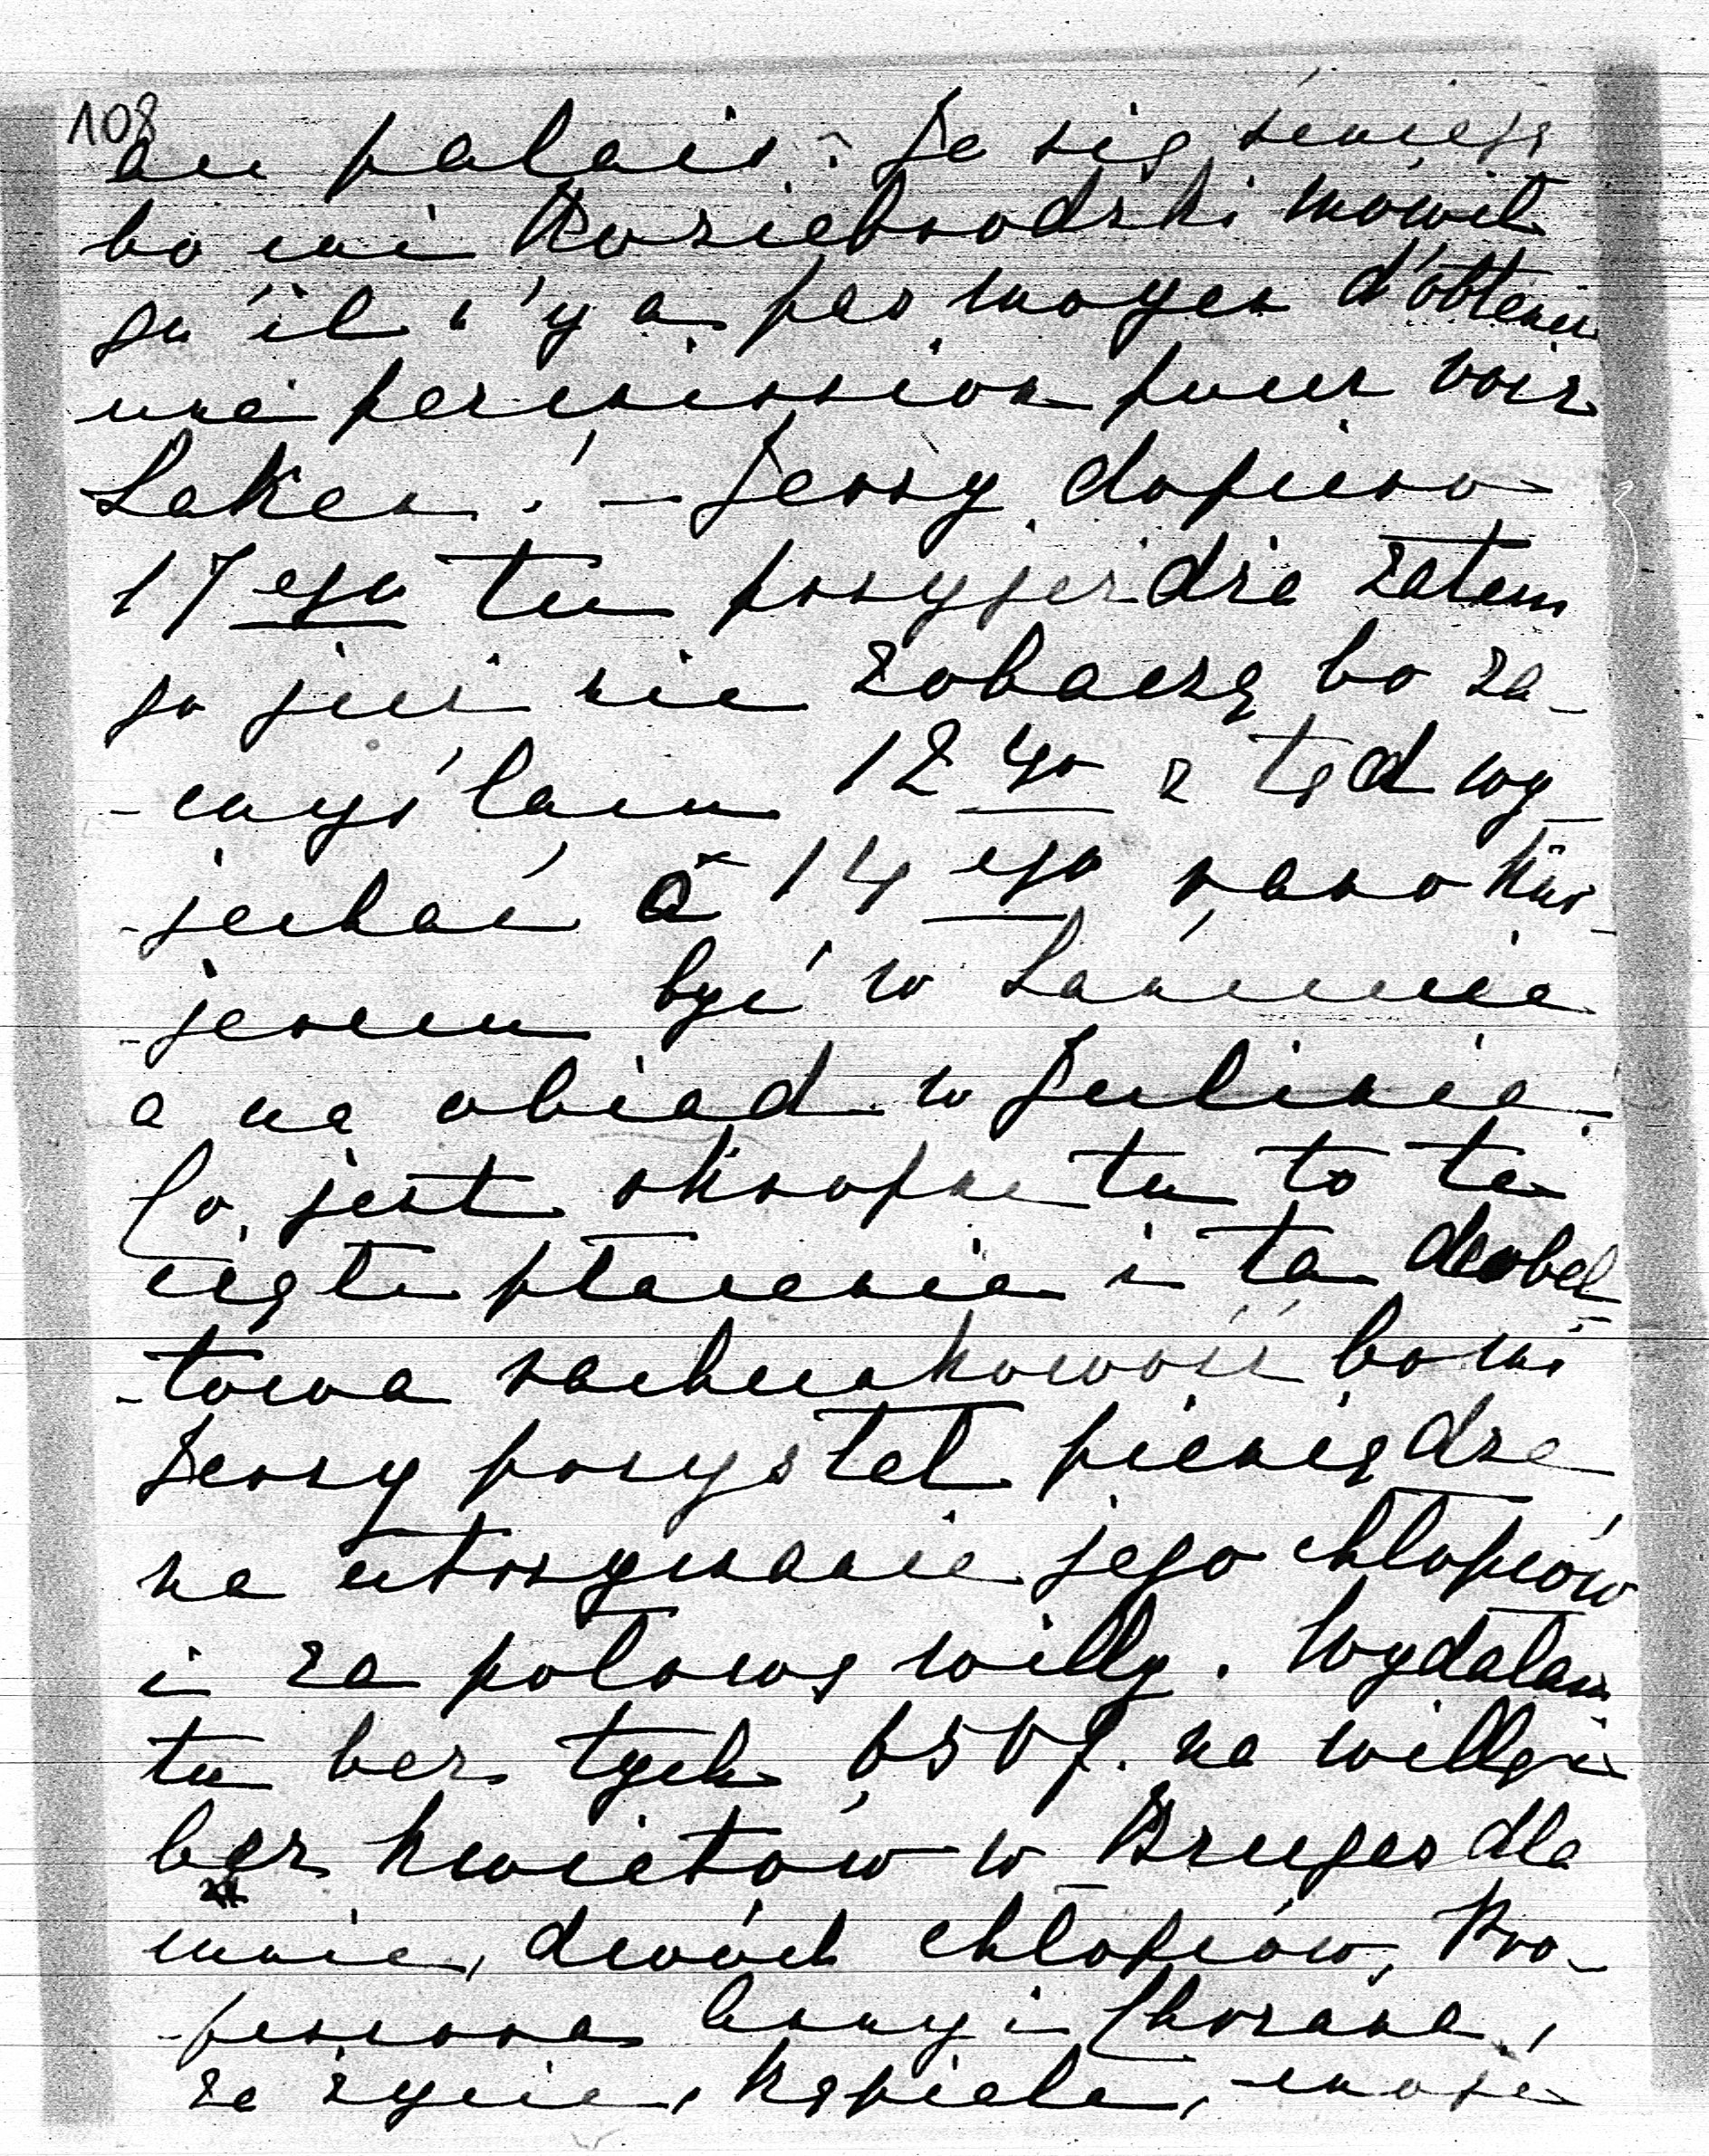 108
au palais". Ja się śmieję
bo mi Koziebrodzki mówił
qu'il n'y a pas moyen d'obtenir
une permission pour voir
Laken! – Jerzy dopiero
17ego tu przyjeżdża zatem
go już nie zobaczę bo za-
-myślam 12go z tąd wy-
jechać a 14ego rano kur-
-jerem być w Łańcucie
a na obiad w Julinie.
Co jest okropne tu to te
ciągłe płacenia i ta dubel-
-towa rachunkowość bo mi
Jerzy przysłał pieniądze
na utrzymanie jego chłopców
i za połowę willy. Wydałam
tu bez tych 650 f. na willę i
bez kwiatów w Bruges dla
mnie, dwóch chłopców, Pro-
-fesora bony i Chorąna,
za życie, kąpiele, moje